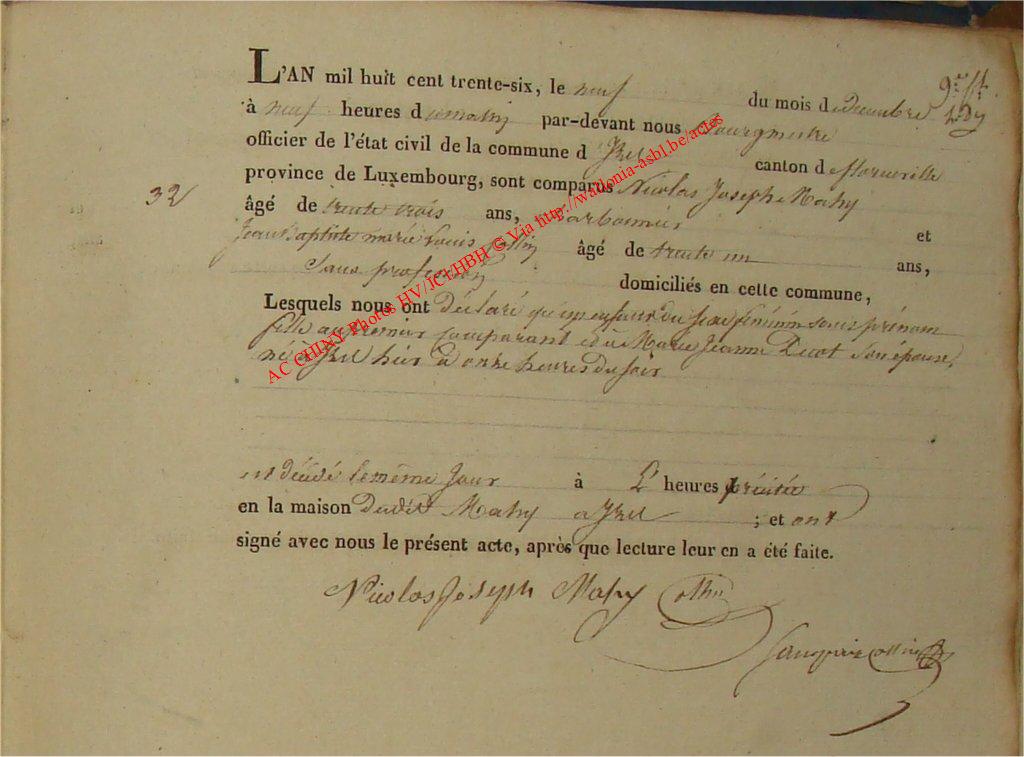 L'AN mil huit cent trente-six, le neuf du mois d edecembre
à neuf heures d umatin par-devant nous Bourgmestre
officier de l'état civil de la commune d Izel canton d eflorenville
32
province de Luxembourg, sont comparus Nicolas Joseph Mahy
âgé de trente trois ans, et
Jean Baptiste marie Louis Collin âgé de trente un ans,
Sans profession domiciliés en cette commune,
Lesquels nous ont déclaré qu'un enfant du sexe féminin sans prénom
fille au premier comparant et de Marie Jeanne son épouse,
né à Izel hier à onze heures du soir
est décédé le même jour à L' heures précitée
en la maison dudit Mahy a Izel ; et ont
signé avec nous le présent acte, après que lecture leur en a été faite.
Nicolas Joseph Mahy Collin
AC CHINY Photos HV/JCI/HBH © Via http://wallonia-asbl.be/actes